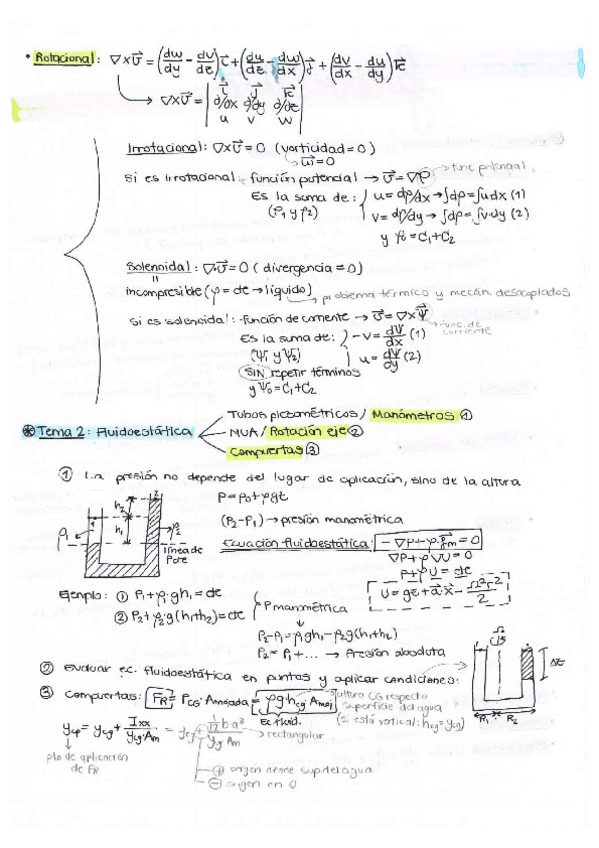 • Rotacional: ∇×v⃗ = (dw/dy - dv/dz) i⃗ + (du/dz - dw/dx) j⃗ + (dv/dx - du/dy) k⃗
→ ∇×v⃗ = | i⃗ j⃗ k⃗ |
| d/dx d/dy d/dz |
| u v w |
Irrotacional: ∇×v⃗ = 0 (vorticidad = 0)
→ w⃗ = 0
Si es irrotacional: -función potencial → v⃗ = ∇φ → func potencial
Es la suma de: u = dφ/dx → ∫dφ = ∫udx (1)
(φ1 y φ2) v = dφ/dy → ∫dφ = ∫v·dy (2)
y φ0 = C1 + C2
Solenoidal: ∇·v⃗ = 0 (divergencia = 0)
=
incompresible (ρ = cte → líquido) → problema térmico y mecán. desacoplados
Si es solenoidal: -función de corriente → v⃗ = ∇×Ψ⃗ → func. de corriente
Es la suma de: -v = dΨ/dx (1)
(Ψ1 y Ψ2) u = dΨ/dy (2)
SIN repetir términos
y Ψ0 = C1 + C2
Tubos piezométricos / Manómetros ①
⊛ Tema 2: Fluidoestática
MUA / Rotación eje ②
Compuertas ③
① La presión no depende del lugar de aplicación, sino de la altura
P = P0 + ρgz
(P2 - P1) → presión manométrica
Ecuación fluidoestática: -∇P + ρ·f⃗m = 0
∇P + ρ∇U = 0
P + ρU = cte
U = gz + a⃗·x⃗ - Ω²r²/2
h2
h1
ρ1
ρ2
línea de P cte
Ejemplo: ① P1 + ρ1·gh1 = cte
② P2 + ρ2·g(h1+h2) = cte
P manométrica
P2 - P1 = ρ1gh1 - ρ2g(h1+h2)
P2 = P1 + ... → Presión absoluta
Ω
Δz
R1 R2
② Evaluar ec. fluidoestática en puntos y aplicar condiciones:
③ Compuertas: FR = PCG·Amojada = ρghcg·Amoj
→ altura CG respecto superficie del agua
Ec fluid. (si está vertical: hcg = ycg)
ycp = ycg + Ixx/(ycg·Am) = ycg ± (1/12 b a³)/(ycg Am) → rectangular
pto de aplicación de FR
⊕ origen desde sup. del agua
⊖ origen en O